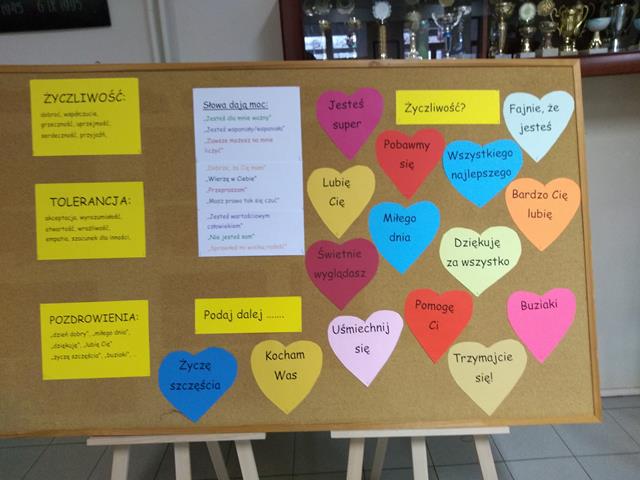 6 IX 1995
ŻYCZLIWOŚĆ:
dobroć, współczucie,
grzeczność, uprzejmość,
serdeczność, przyjaźń,
TOLERANCJA:
akceptacja, wyrozumiałość,
otwartość, wrażliwość,
empatia, szacunek dla inności,
POZDROWIENIA:
„dzień dobry", „miłego dnia",
„dziękuję", „lubię Cię"
„życzę szczęścia", „buziaki", .
Słowa dają moc:
„Jesteś dla mnie ważny"
„Jesteś wspaniały/wspaniała"
„Zawsze możesz na mnie
liczyć"
„Dobrze, że Cię mam"
„Wierzę w Ciebie"
„Przepraszam"
„Masz prawo tak się czuć"
„Jesteś wartościowym
człowiekiem"
„Nie jesteś sam"
„Sprawiłeś mi wielką radość"
Podaj dalej .......
Życzę
szczęścia
Kocham
Was
Jesteś
super
Życzliwość?
Fajnie, że
jesteś
Pobawmy
się
Wszystkiego
najlepszego
Lubię
Cię
Bardzo Cię
lubię
Miłego
dnia
Dziękuję
za wszystko
Świetnie
wyglądasz
Pomogę
Ci
Buziaki
Uśmiechnij
się
Trzymajcie
się!